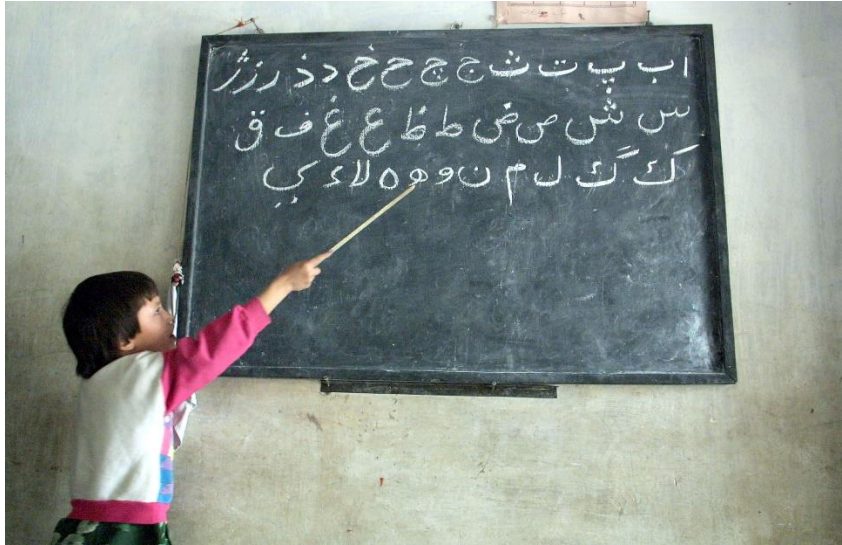 ا ب پ ت ث ج چ ح خ د ذ ر ز ژ
س ش ص ض ط ظ ع غ ف ق
ک گ ل م ن و ه ه لا ء ي